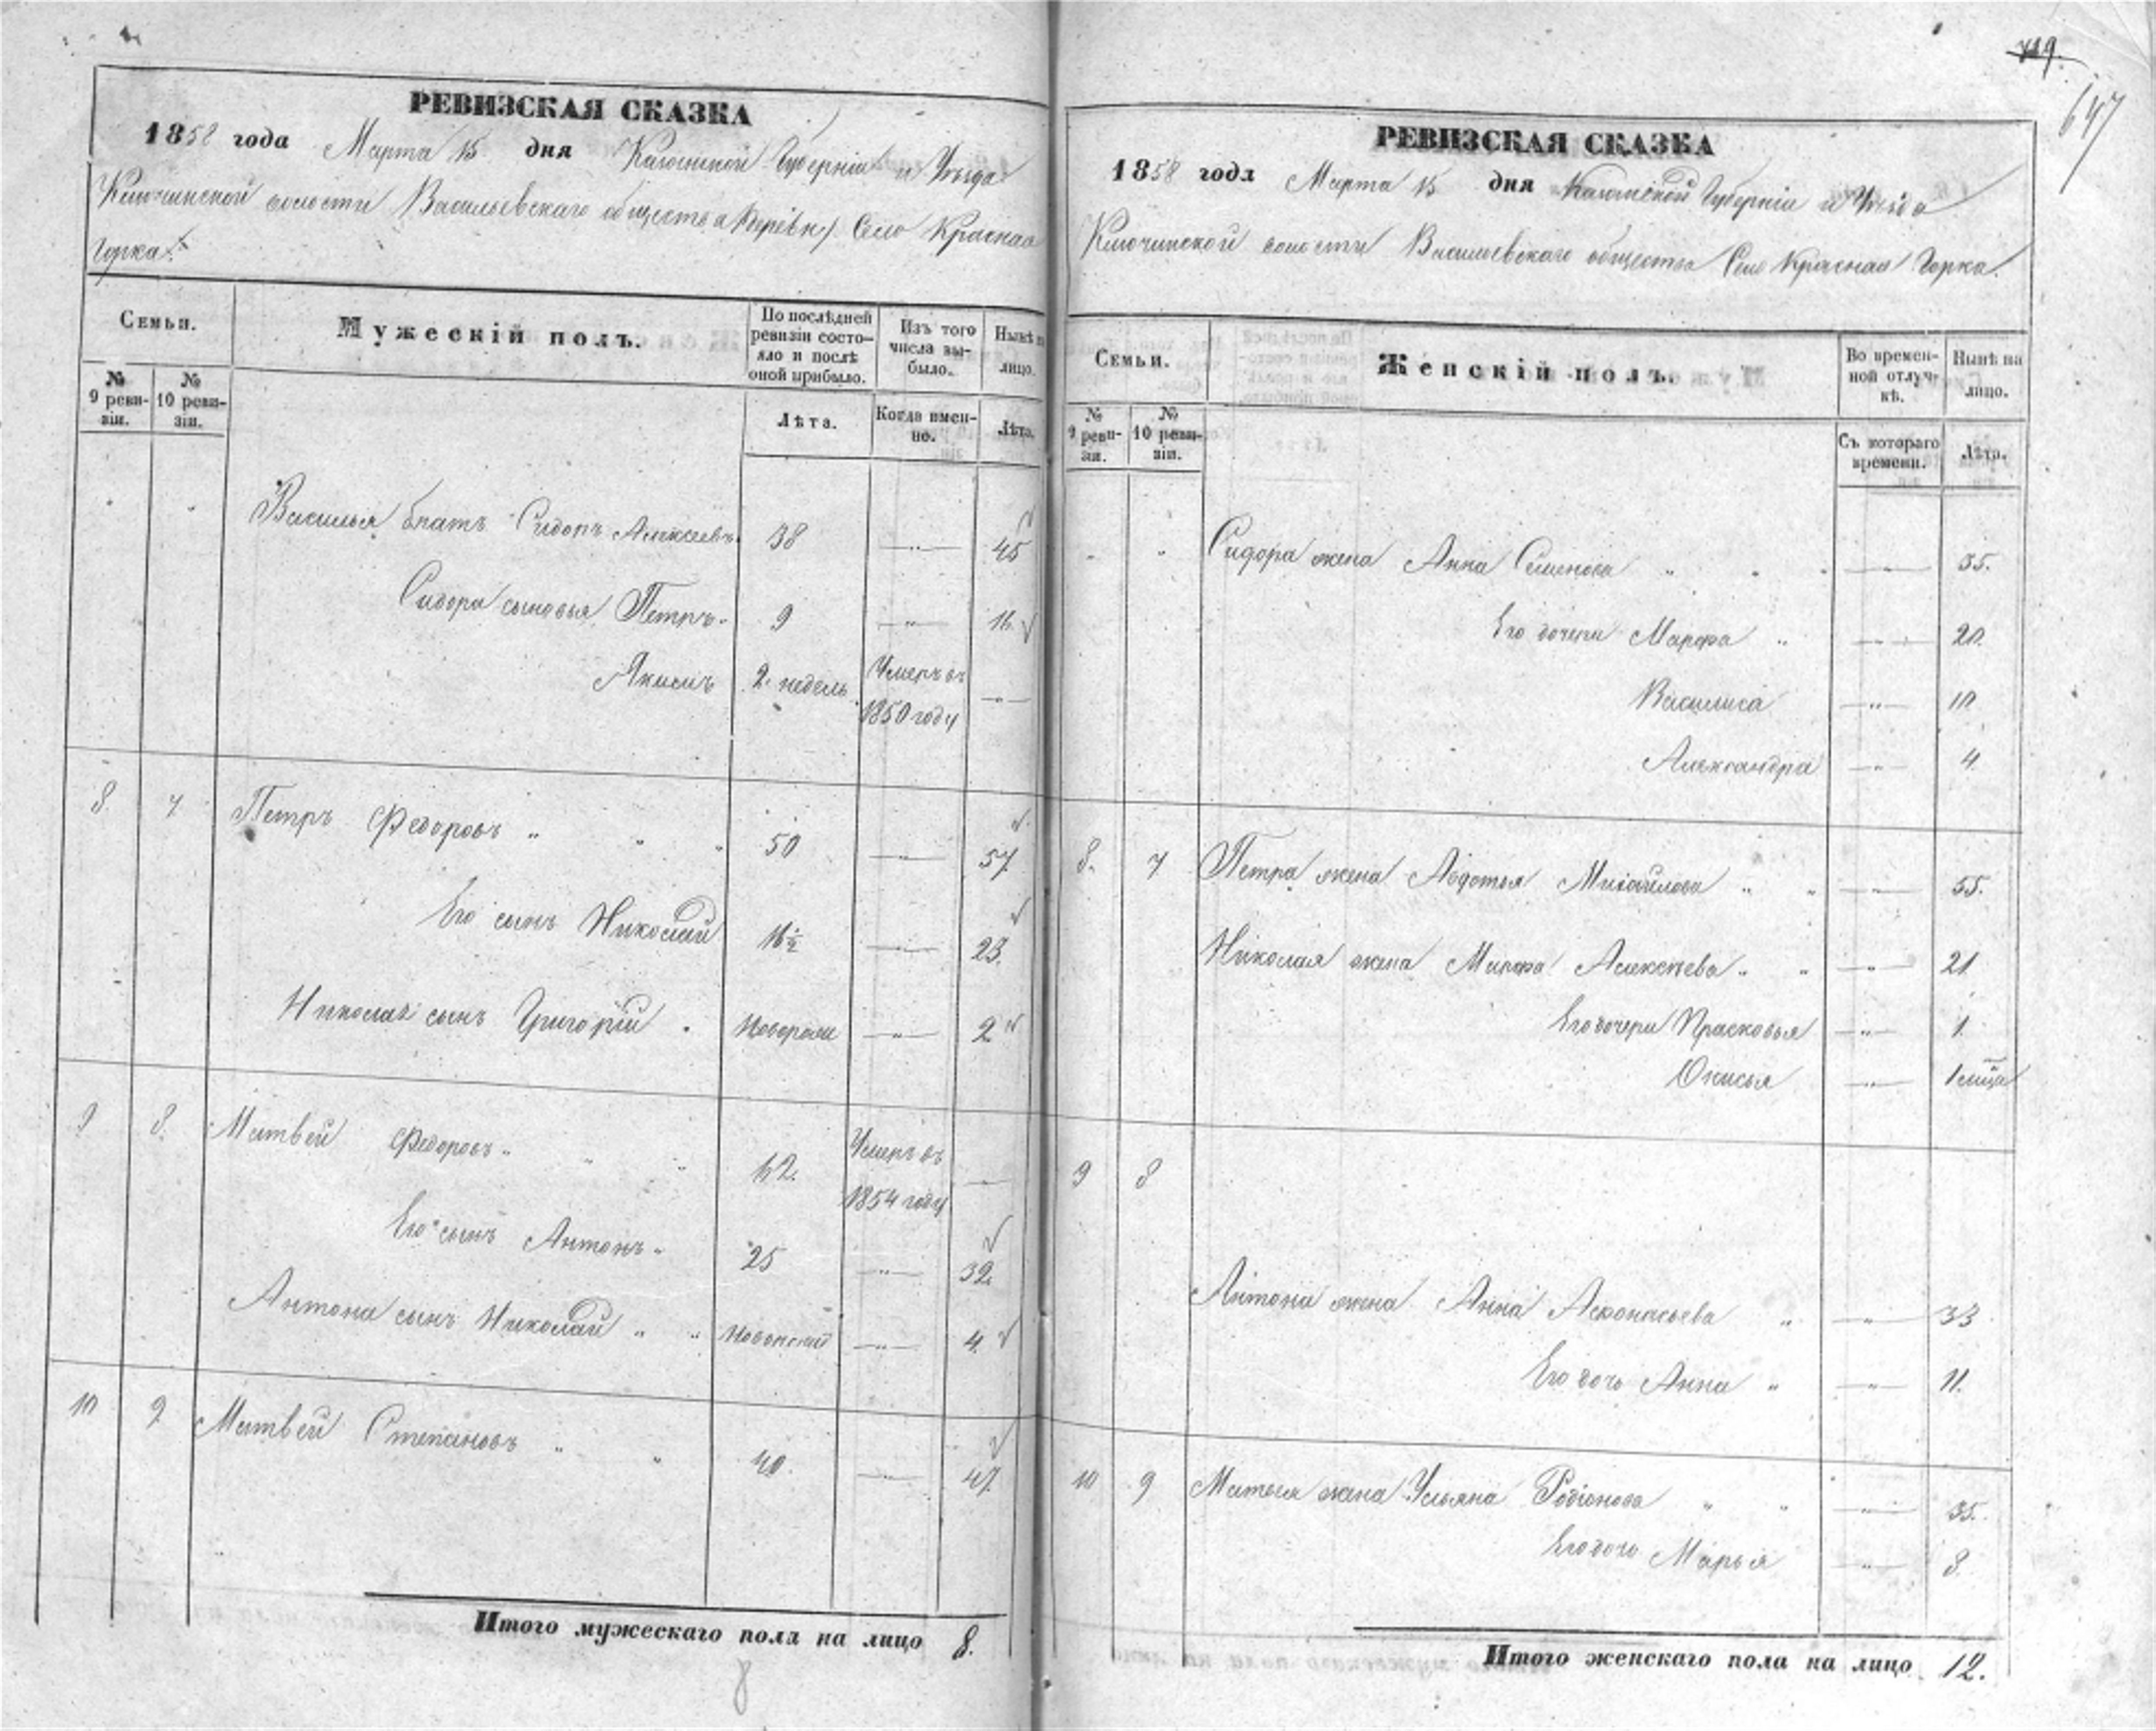 РЕВИЗСКАЯ СКАЗКА
1858 года Марта 15 дня Казанской Губерніи и Уѣзда
Ключинской волости Васильевскаго общества Деревн) Село Красная
Горка.
Семьи.
Мужескій полъ.
По послѣдней ревизіи состояло и послѣ оной прибыло.
Изъ того числа выбыло.
Нынѣ на лицо.
№ 9 ревизіи.
№ 10 ревизіи.
Лѣта.
Когда именно.
Лѣта.
" " Василья братъ Сидоръ Алексеевъ 38 —"— 45
Сидора сыновья Петръ 9 —"— 16
Якимъ 2 недель Умеръ въ 1850 году —"—
8 7 Петръ Федоровъ " " " 50 —"— 57
Его сынъ Николай 16½ —"— 23.
Николая сынъ Григорій Новорож —"— 2
9 8. Матвей Федоровъ " " " 62. Умеръ въ 1854 году —
Его сынъ Антонъ " 25 —"— 32.
Антона сынъ Николай " " —"— 4.
10 9 Матвей Степановъ " " 40. —"— 47.
Итого мужескаго пола на лицо 8.
8
719.
647
РЕВИЗСКАЯ СКАЗКА
1858 года Марта 15 дня Казанской Губерніи и Уѣзда
Ключинской волости Васильевскаго общества Село Красная Горка.
Семьи.
Женскій полъ.
Во временной отлучкѣ.
Нынѣ на лицо.
№ 9 ревизіи.
№ 10 ревизіи.
Съ котораго времени.
Лѣта.
" " Сидора жена Анна Семенова " " " —"— 35.
Его дочери Марфа " —"— 20.
Василиса —"— 10
Александра —"— 4.
8. 7 Петра жена Авдотья Михайлова " " —"— 55.
Николая жена Марфа Алексеева " " —"— 21
Его дочери Прасковья —"— 1.
—"— 1 мца
9 8
Антона жена Анна Афонасьева " —"— 33
Его дочь Анна " —"— 11.
10 9 Матвея жена Ульяна Родіонова " " —"— 35.
Его дочь Марья —"— 8
Итого женскаго пола на лицо 12.